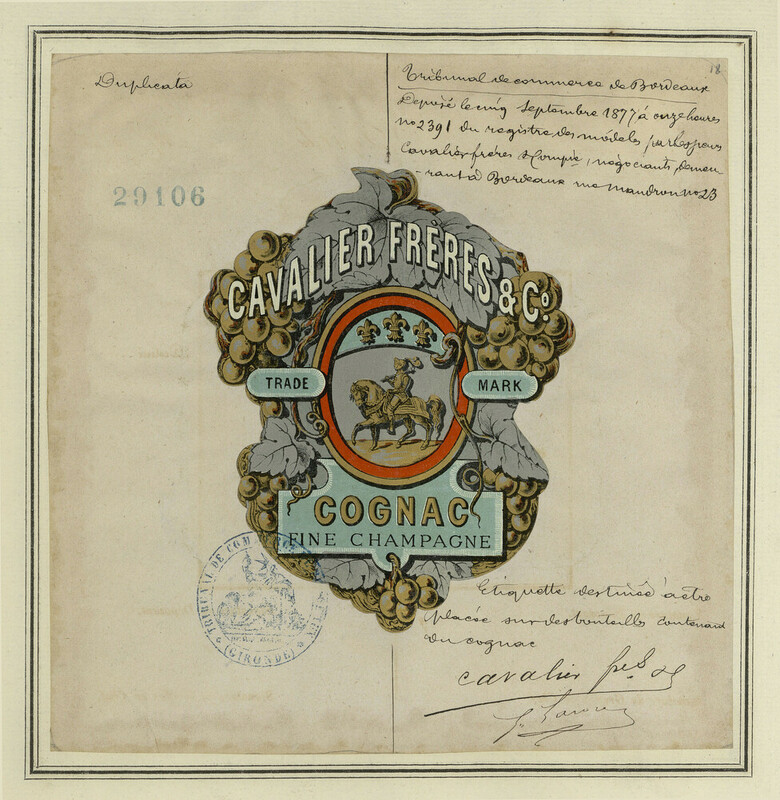 Duplicata
18
Tribunal de commerce de Bordeaux
Déposé le cinq Septembre 1877 à onze heures
no 2391 du registre des modèles, par les sieurs
Cavalier frères & Compie, négociants, demeu
-rant à Bordeaux rue Mandron no 23
29106
CAVALIER FRÈRES & Co.
TRADE MARK
COGNAC
FINE CHAMPAGNE
TRIBUNAL DE COM
(GIRONDE)
Etiquette destinée à être
placée sur des bouteilles contenant
du cognac
cavalier fres